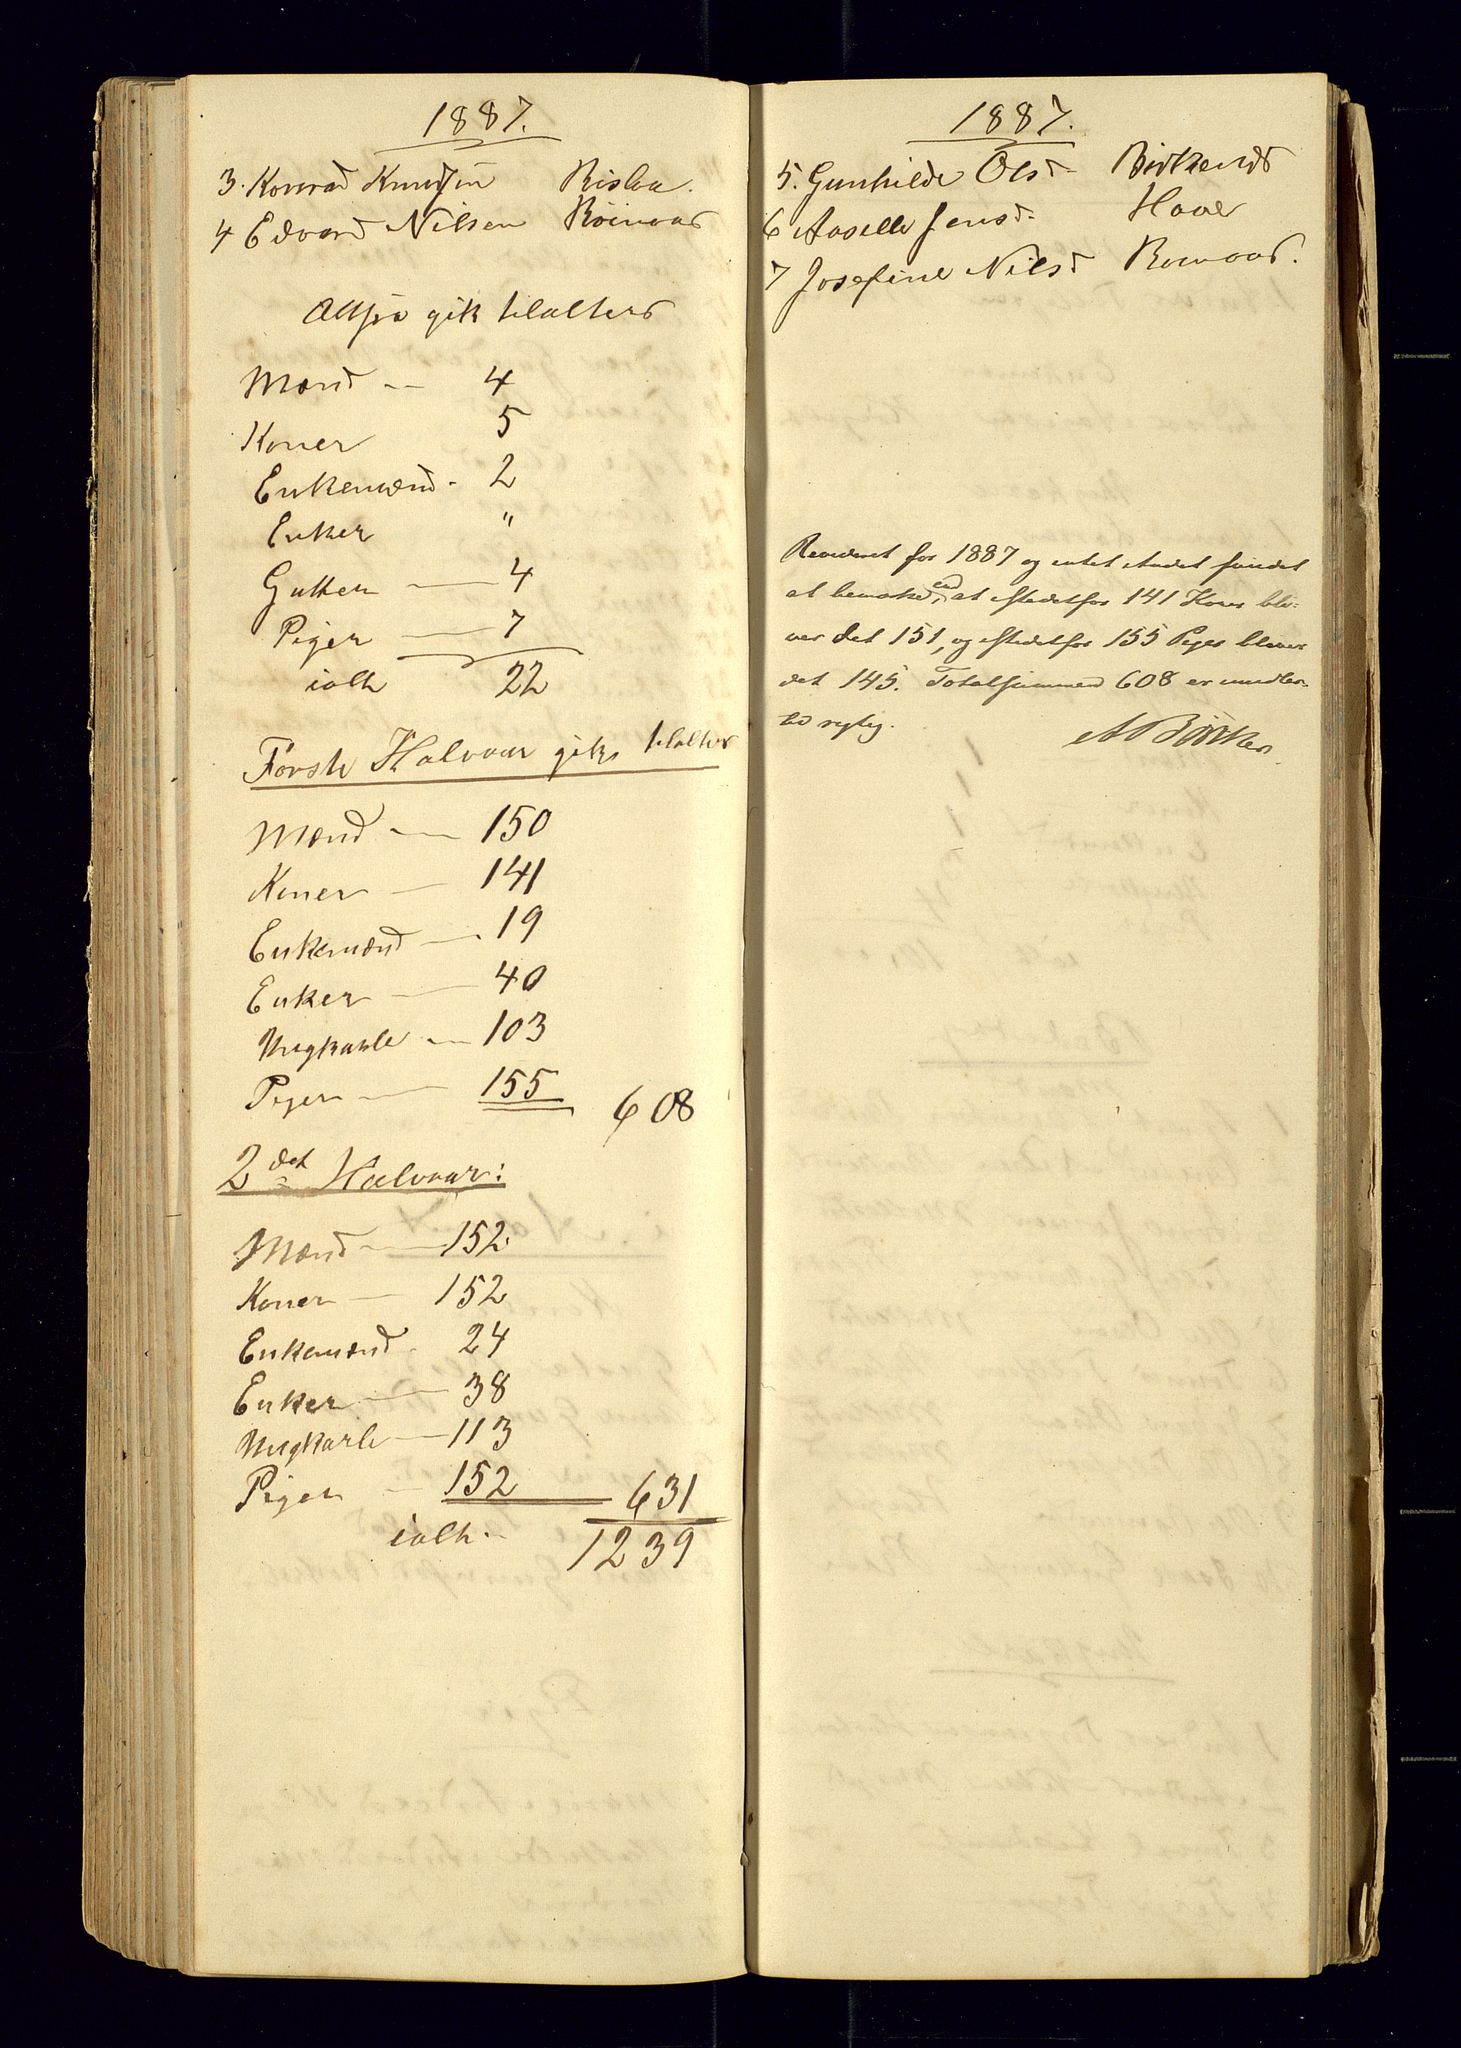 1887.
3. Konrad Knudsen Risløa.
4 Edvard Nilsen Röinvas
Altsaa gik tilalters
Mænd — 4
Koner 5
Enkemænd - 2
Enker "
Gutter — 4
Piger — 7
ialt 22
Första Halvaar gik tilalters
Mænd — 150
Koner — 141
Enkemænd — 19
Enker — 40
Ungkarle — 103
Piger — 155 608
2det Halvaar:
Mænd — 152
Koner — 152
Enkemænd. 24
Enker — 38
Ungkarle — 113
Piger — 152 631
ialt. - 1239
1887.
5. Gunhilde Olsd. Birkenes
6 Aaselle Jensd. Haaes
7 Josefine Nilsd
Revideret for 1887 og intet Andet fundet
at bemærke, end at istedetfor 141 Koner bli-
ver det 151, og istedetfor 155 Piger bliver
det 145. Totalsummen 608 er imidler-
tid rigtig.